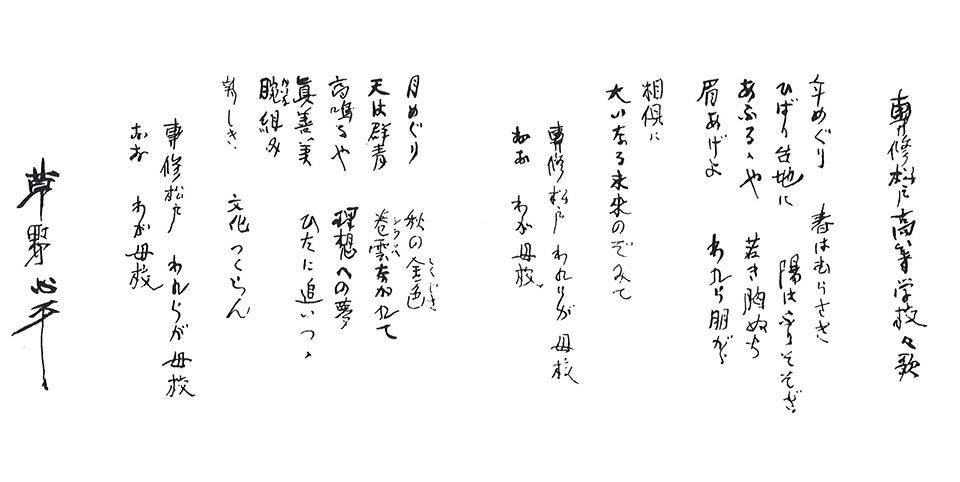 専修松戸高等学校々歌
年めぐり　春はむらさき
ひばり台地に　陽はふりそそぎ
あふるゝや　若き胸ぬち
眉あげよ　われら朋がら
相倶に
大いなる未来のぞみて
専修松戸　われらが母校
おお　わが母校
月めぐり　秋の金色
天は群青　巻雲ながれて
高鳴るや　理想への夢
眞善美　ひたに追いつゝ
腕組み
新しき　文化つくらん
専修松戸　われらが母校
おお　わが母校
草野心平